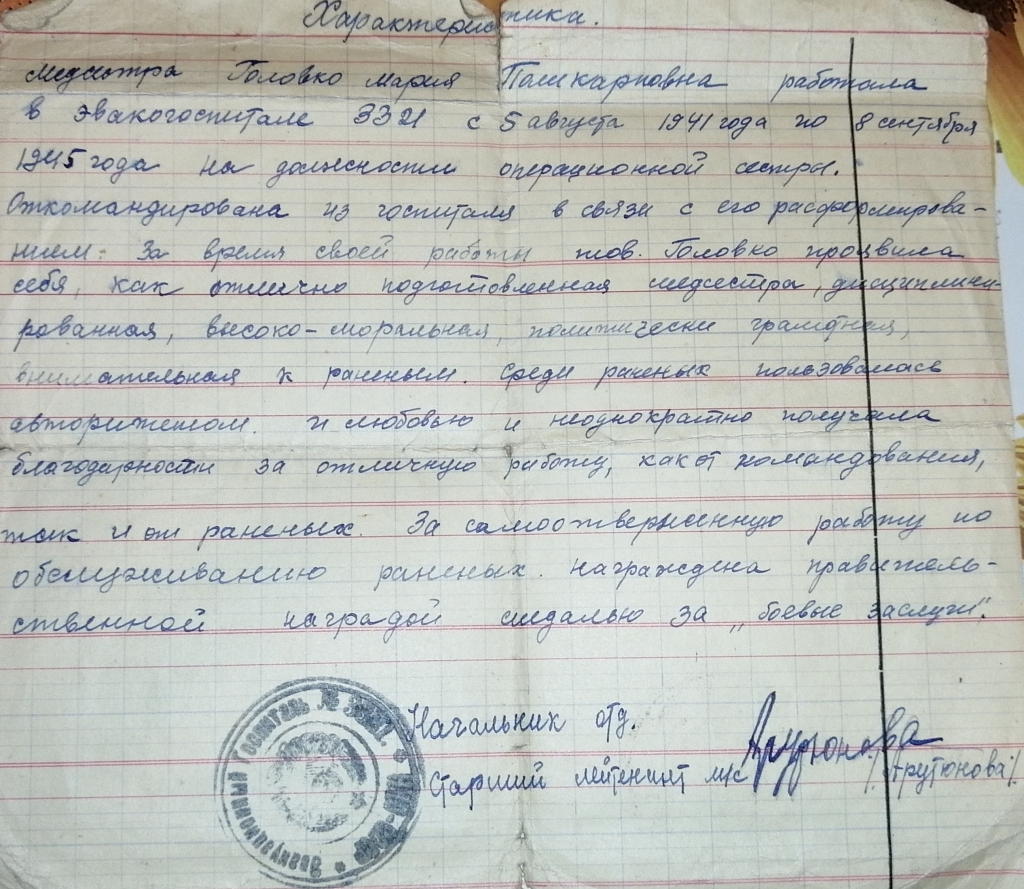 Характеристика.
Медсестра Головко Мария Поликарповна работала
в эвакогоспитале 3321 с 5 августа 1941 года по 8 сентября
1945 года на должности операционной сестры.
Откомандирована из госпиталя в связи с его расформирова-
нием. За время своей работы тов. Головко проявила
себя, как отлично подготовленная медсестра, дисциплини-
рованная, высоко-моральная, политически грамотная,
внимательная к раненым. Среди раненых пользовалась
авторитетом. и любовью и неоднократно получала
благодарности за отличную работу, как от командования,
так и от раненых. За самоотверженную работу по
обслуживанию раненых. награждена правитель-
ственной наградой медалью за „боевые заслуги".
Начальник отд.
старший лейтенант м/с Арутюнова /Арутюнова/.
Эвакуационный Госпиталь №